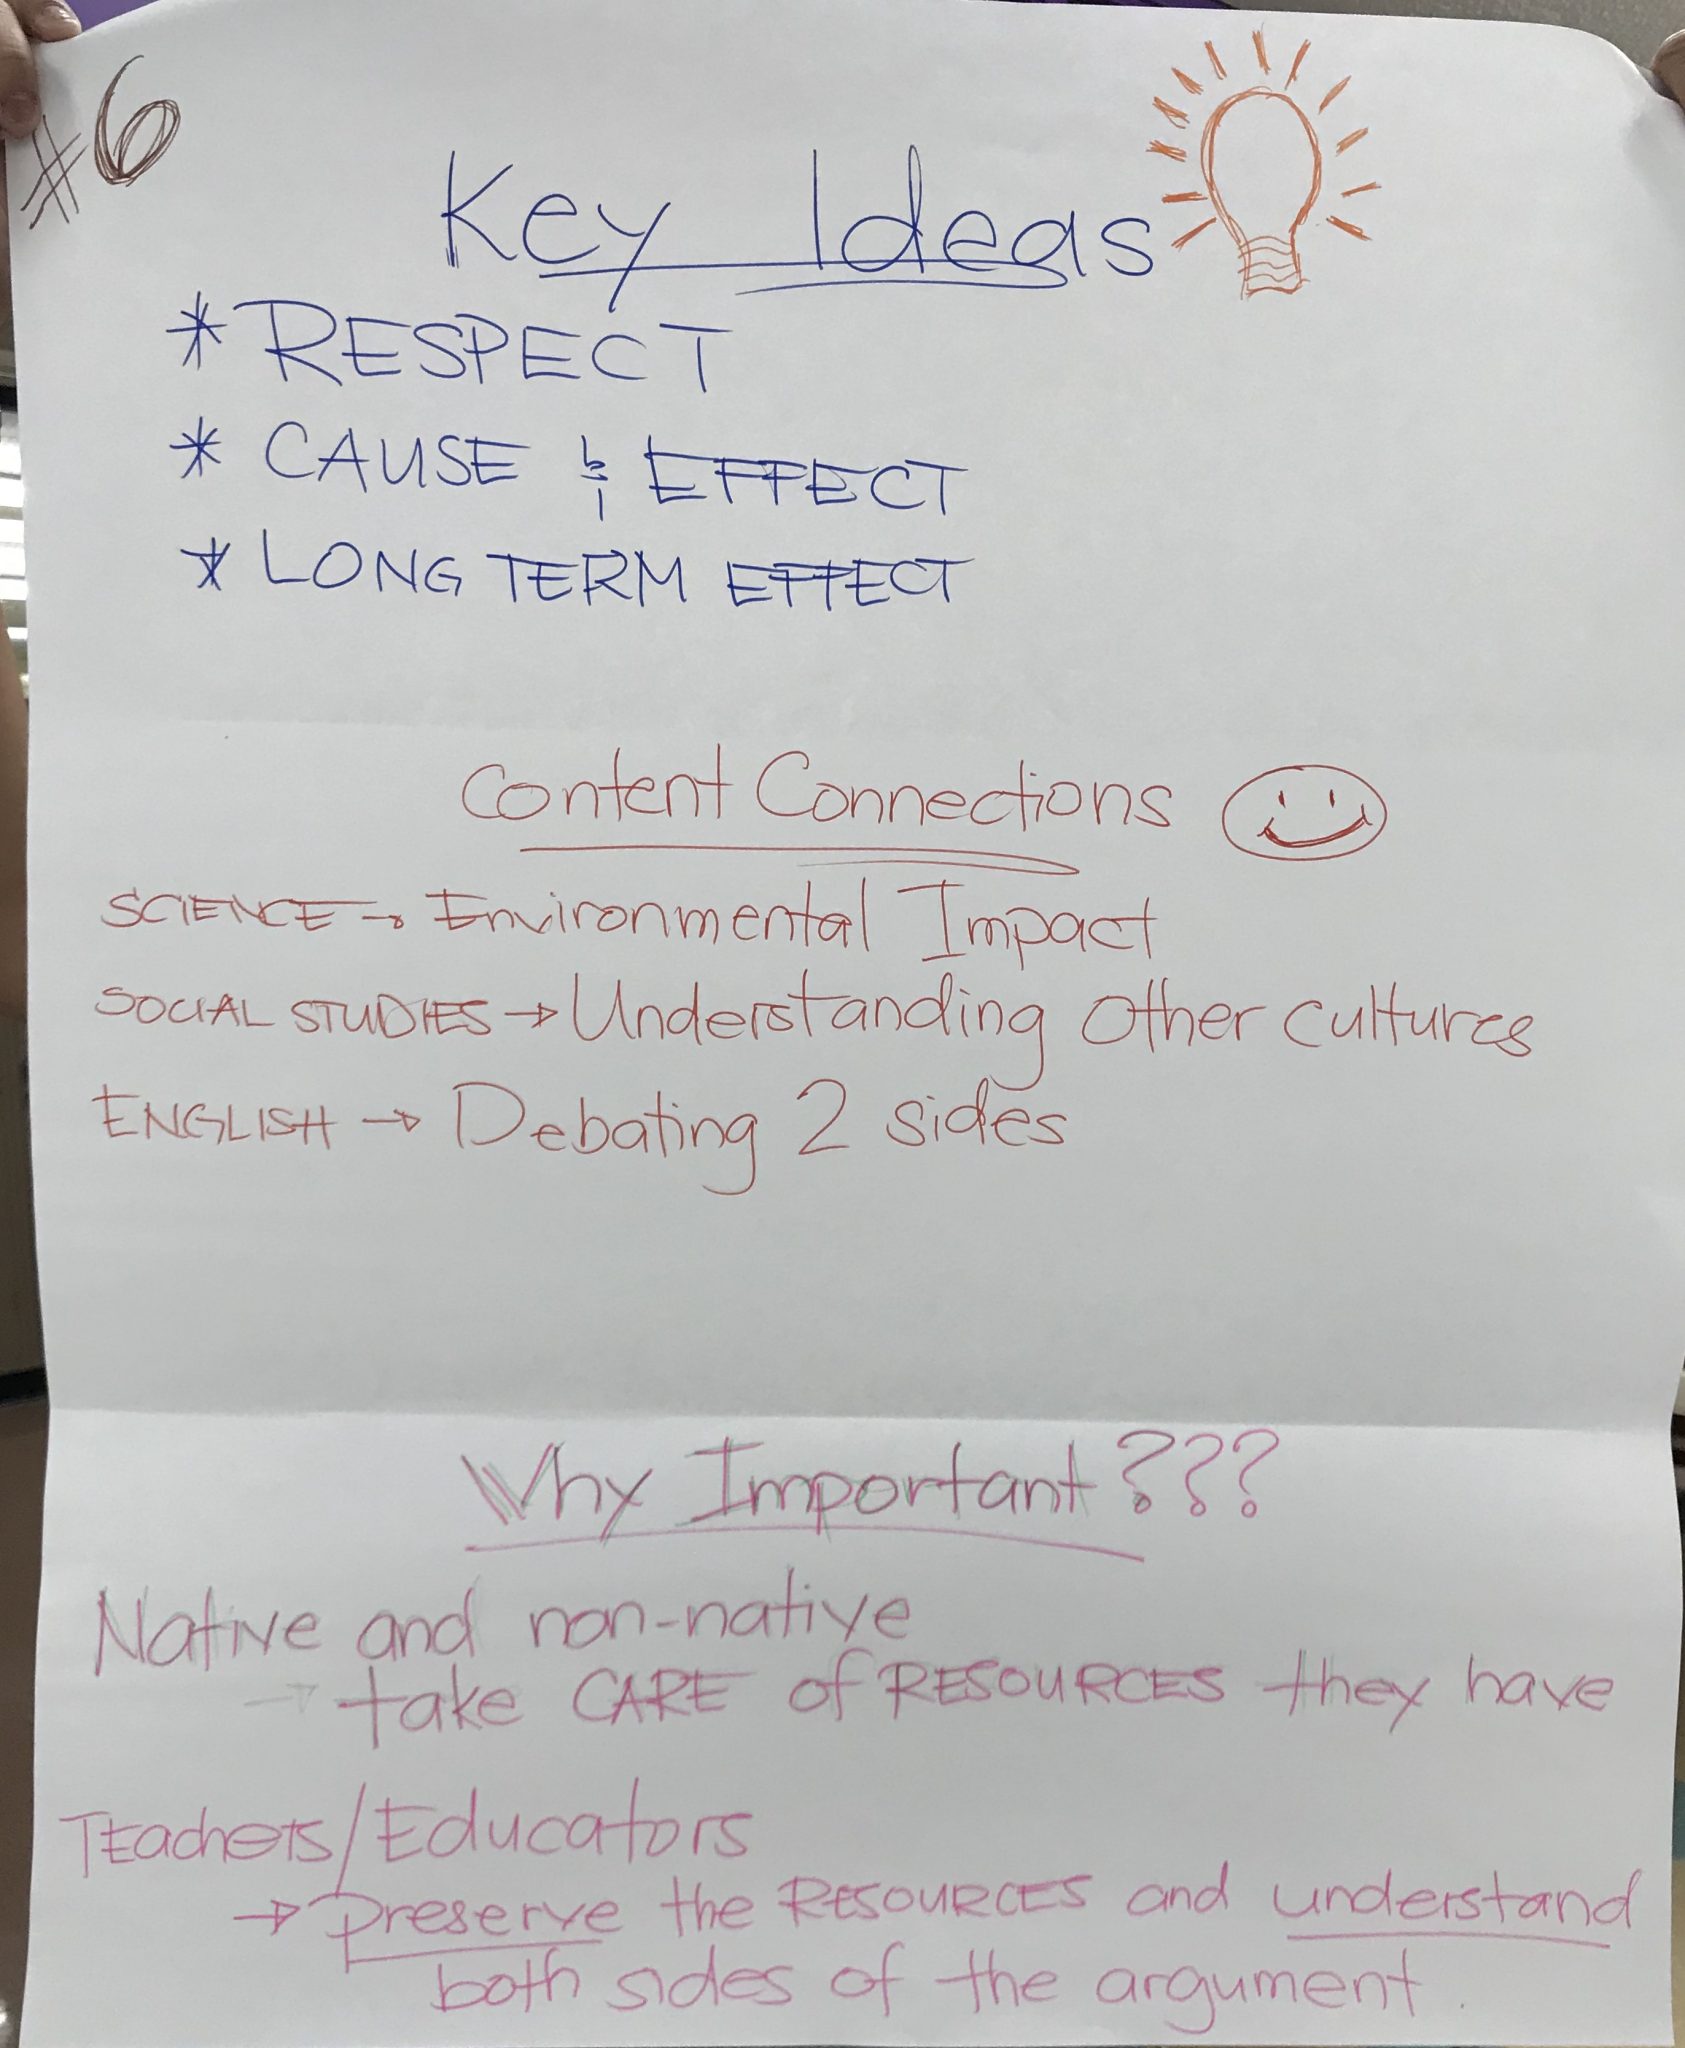 #6
Key Ideas
* RESPECT
* CAUSE & EFFECT
* LONG TERM EFFECT
Content Connections
SCIENCE → Environmental Impact
SOCIAL STUDIES → Understanding other cultures
ENGLISH → Debating 2 sides
Why Important???
Native and non-native
→ take CARE of RESOURCES they have
TEachers/Educators
→ preserve the RESOURCES and understand
both sides of the argument.